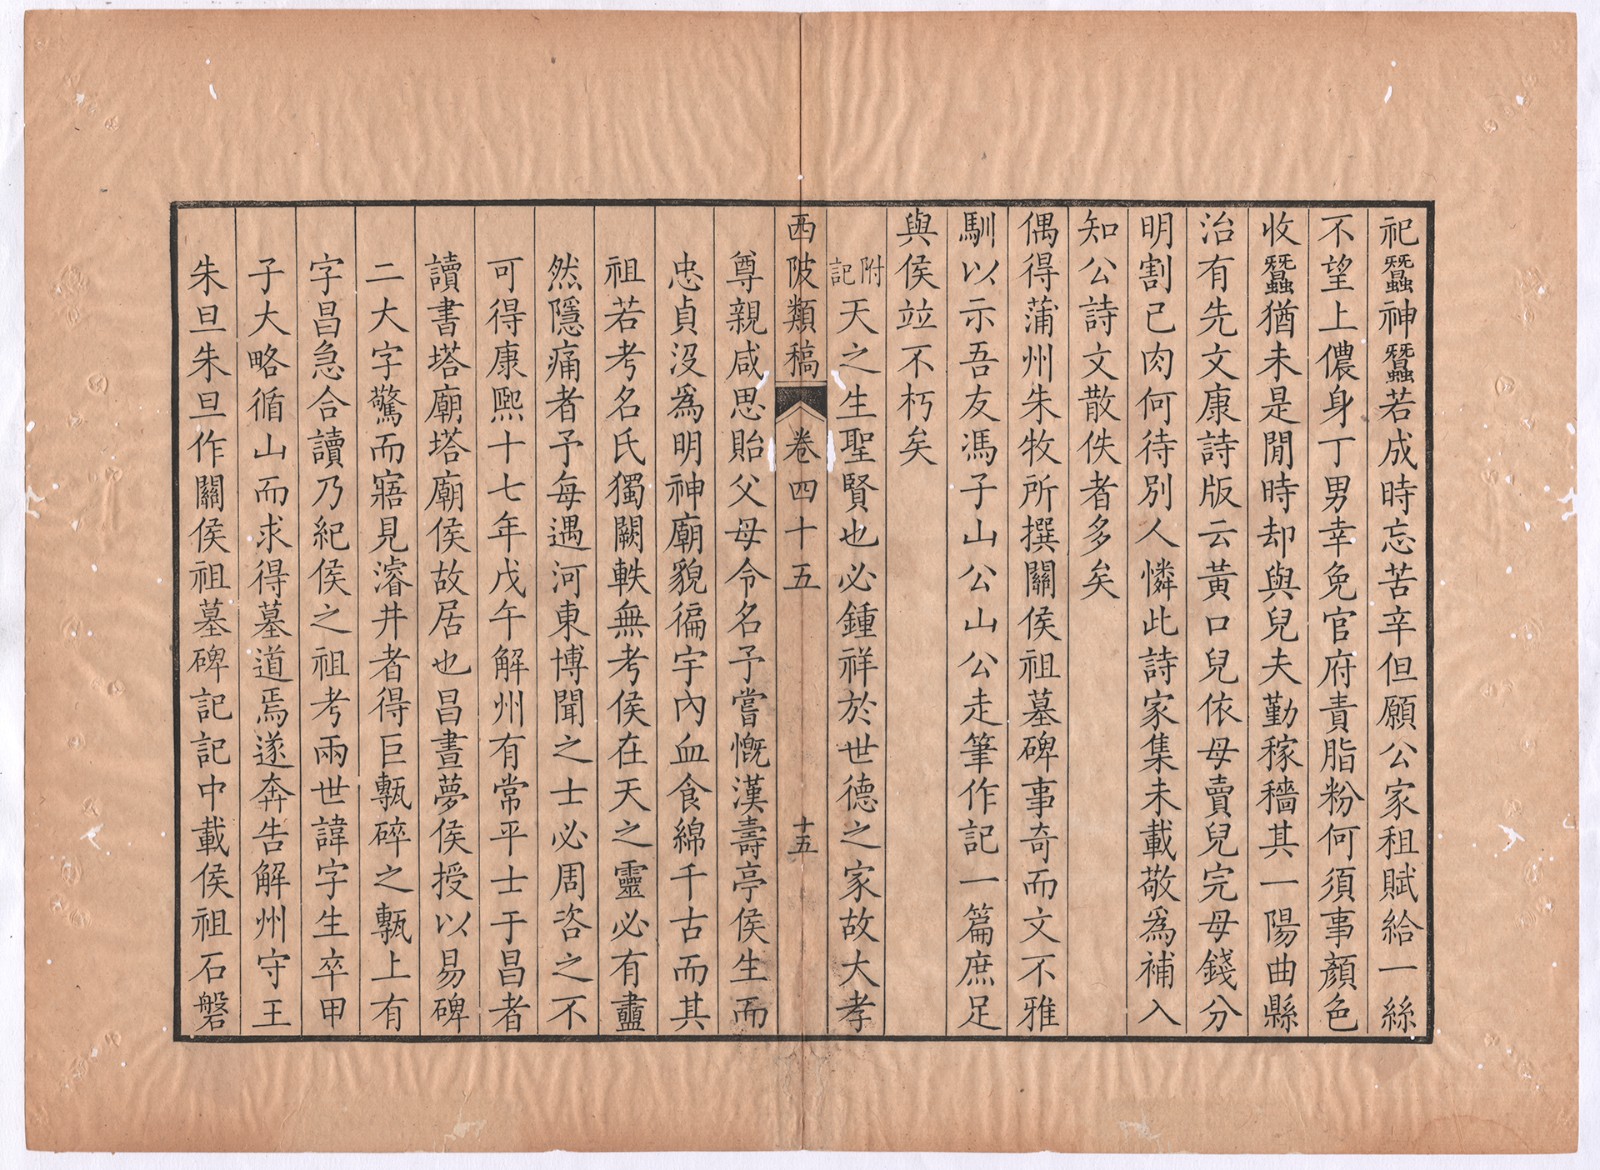 祀蠶神蠶若成時忘苦辛但願公家租賦給一絲
不望上儂身丁男幸免官府責脂粉何須事顏色
收蠶猶未是閒時却與兒夫勤稼穡其一陽曲縣
治有先文康詩版云黃口兒依母賣兒完母錢分
明割己肉何待別人憐此詩家集未載敬爲補入
知公詩文散佚者多矣
偶得蒲州朱牧所撰關侯祖墓碑事奇而文不雅
馴以示吾友馮子山公山公走筆作記一篇庶足
與侯竝不朽矣
附記天之生聖賢也必鍾祥於世德之家故大孝
西陂類稿 卷四十五 十五
尊親咸思貽父母令名予嘗慨漢壽亭侯生而
忠貞沒爲明神廟貌徧宇內血食綿千古而其
祖若考名氏獨闕軼無考侯在天之靈必有衋
然隱痛者予每遇河東博聞之士必周咨之不
可得康熙十七年戊午解州有常平士于昌者
讀書塔廟塔廟侯故居也昌晝夢侯授以易碑
二大字驚而寤見濬井者得巨甎碎之甎上有
字昌急合讀乃紀侯之祖考兩世諱字生卒甲
子大略循山而求得墓道焉遂奔告解州守王
朱旦朱旦作關侯祖墓碑記記中載侯祖石磐